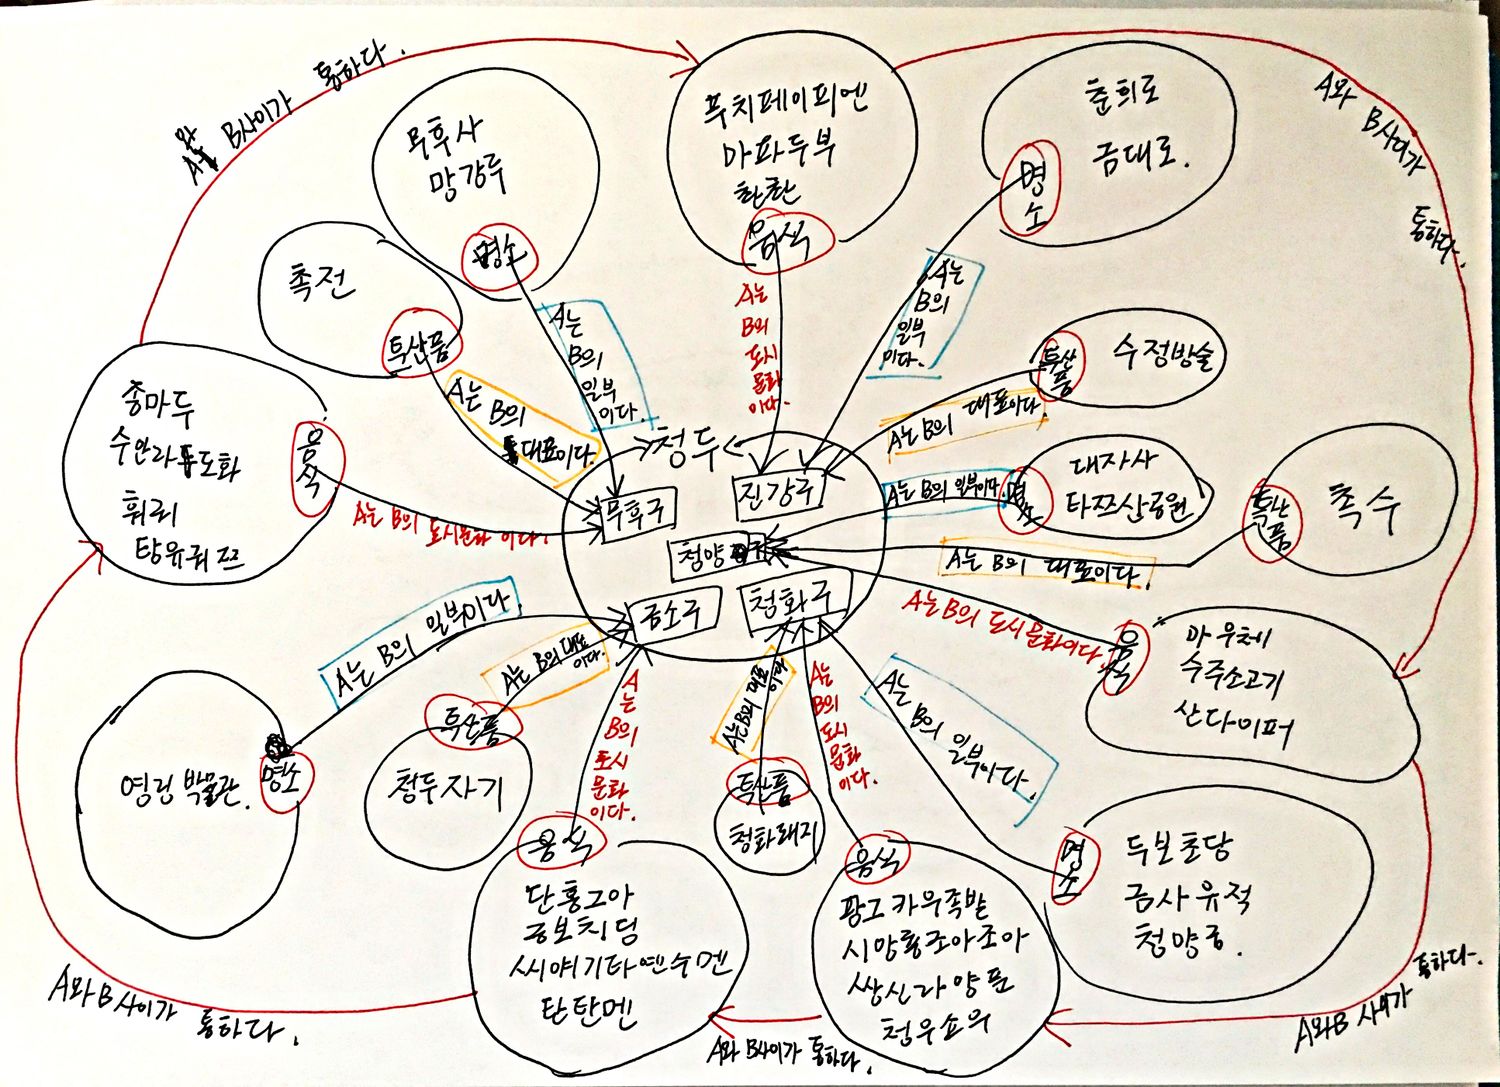 A와 B사이가 통하다.
무후사
망강루
명소
촉전
특산품
푸치페이피엔
마파두부
촨촨
음식
춘희로
금대로.
명소
A와 B사이가 통하다.
A는 B의 일부이다.
A는 B의 대표이다.
A는 B의 도시문화이다.
A는 B의 일부이다.
수정방술
특산품
A는 B의 대표이다.
충마두
수안라
훠궈
탕유궈쯔
음식
A는 B의 도시문화이다.
청두
무후구
진강구
청양
금소구
청화구
A는 B의 일부이다.
대자사
타쯔산공원
명소
촉수
특산품
A는 B의 대표이다.
A는 B의 도시문화이다.
음식
마우체
수주소고기
산다이퍼
A는 B의 일부이다.
박물관.
명소
A는 B의 대표이다.
특산품
청두자기
A는 B의 도시문화이다.
음식
단홍그아
궁보치딩
단탄멘
A는 B의 대표이다.
특산품
청화돼지
A는 B의 도시문화이다.
음식
카우족발
청우쇼우
A는 B의 일부이다.
명소
두보초당
금사유적
청양궁.
A와 B사이가 통하다.
A와 B사이가 통하다.
A와 B사이가 통하다.